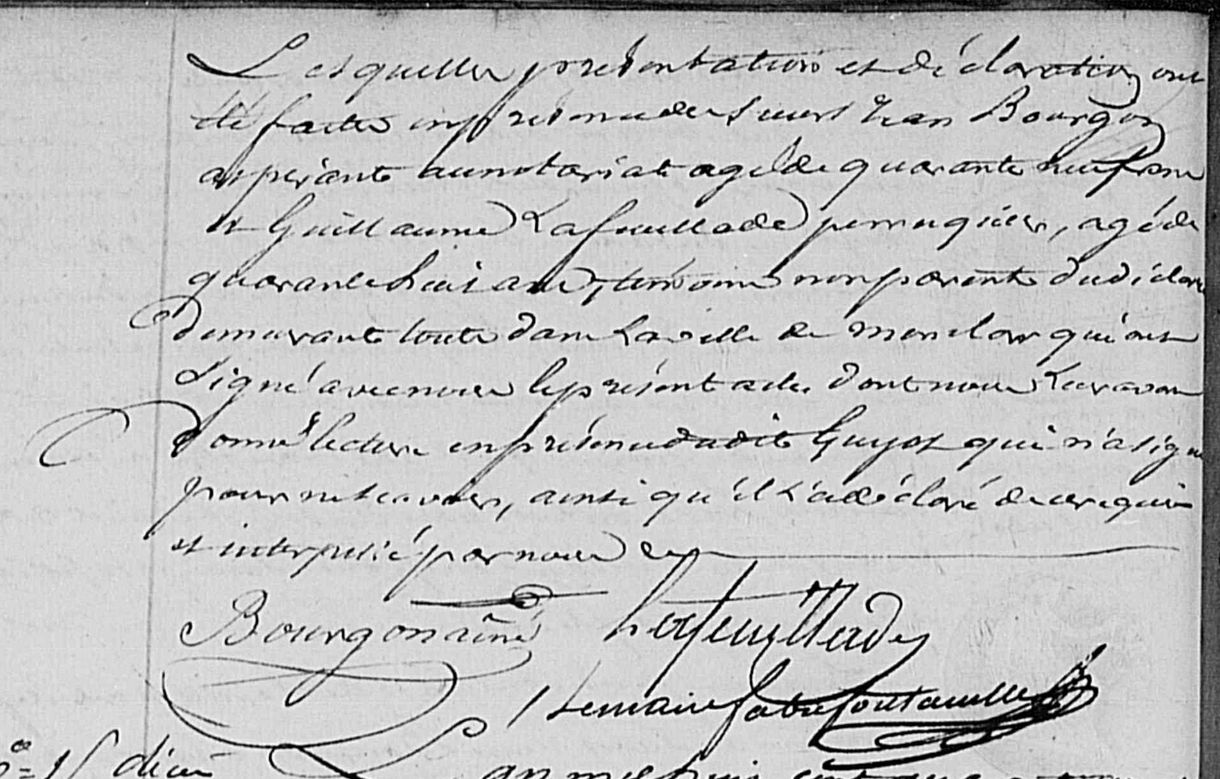 Lesquelles présentation et déclaration ont
été faites en présence de sieurs Jean Bourgon
aspirant au notariat agé de quarante neuf ans
et Guillaume Lafeuillade perruquier, agé de
quarante huit ans, témoins non parents dudi déclar
demeurants touts dans la ville de Monclar qui ont
signé avec nous le présent acte dont nous leur avons
donné lecture en présence dudit Guyot qui n'a signé
pour ne scavoir, ainsi qu'il l'a déclaré de ce requis
et interpellé par nous
Bourgon ainé Lafeuillade
Lemaire
dice
L'an mil huit cent